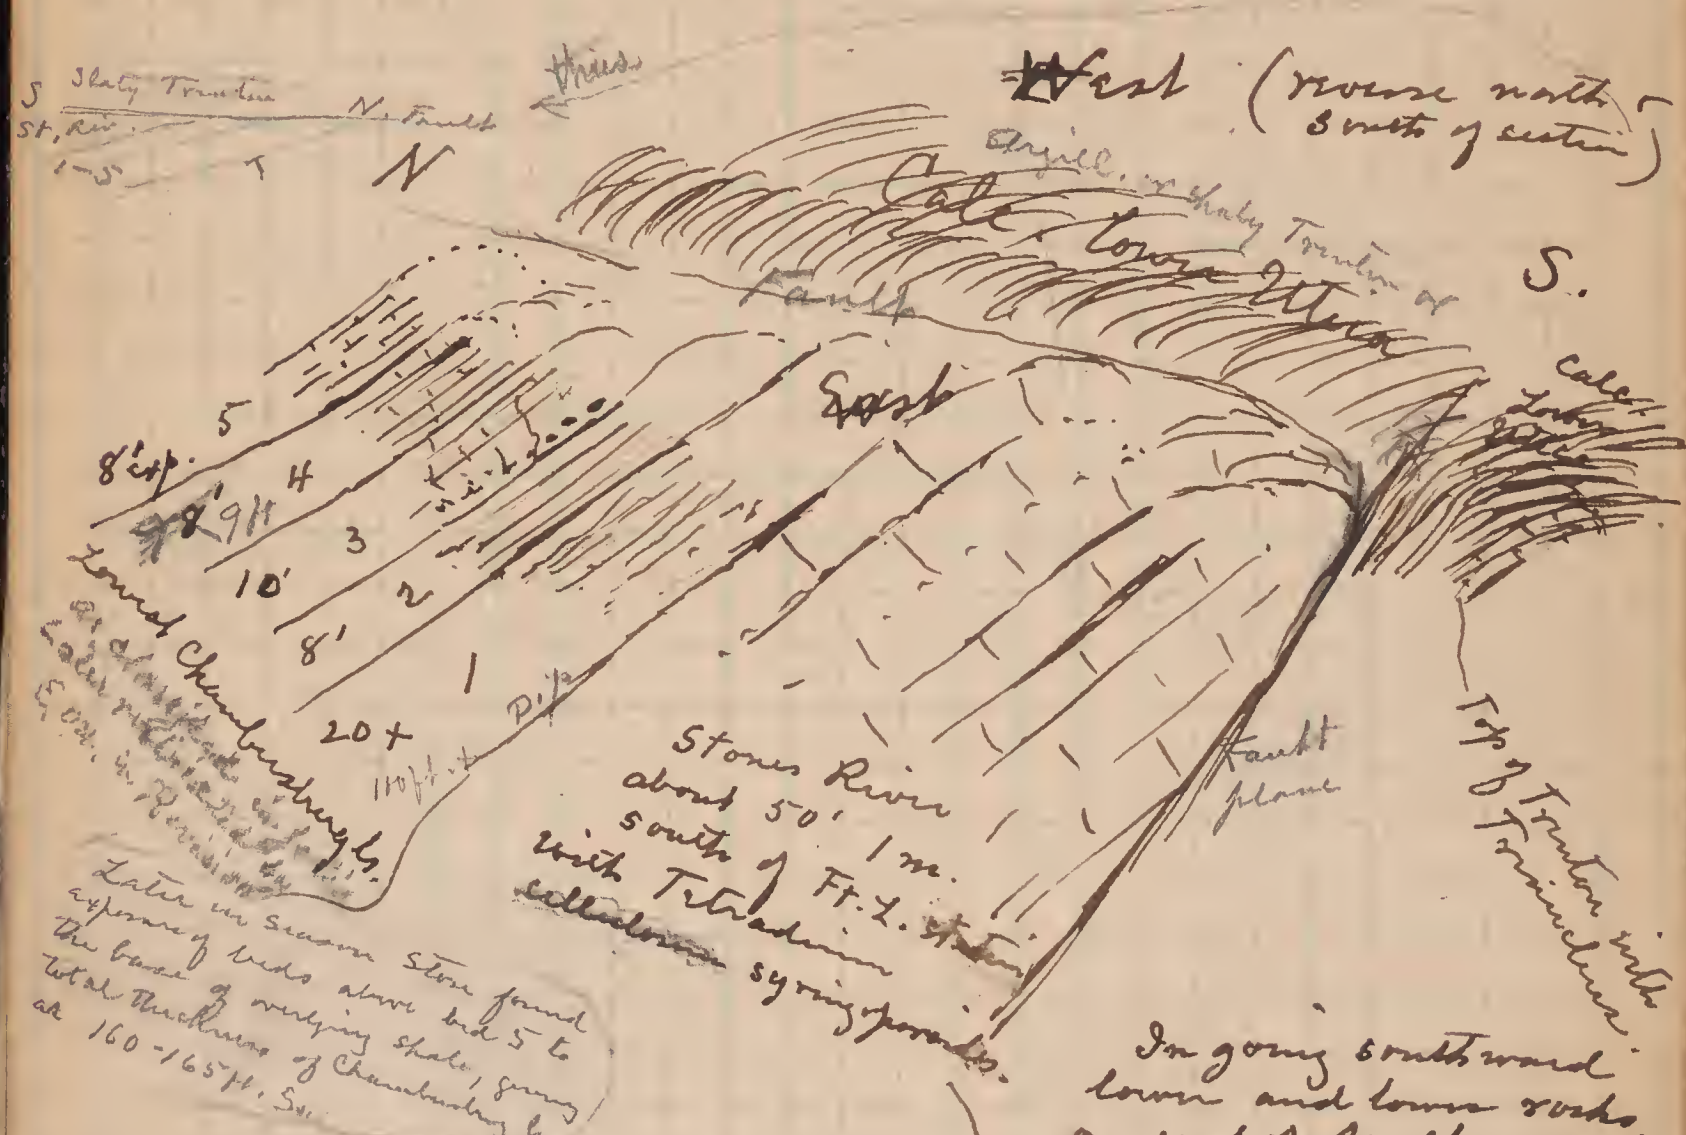 Slaty Trenton
S
N. Fault
thus
St. Riv.
1-5
N
West (reverse north +
south of section)
Argill. or shaly Trenton or
Calc. lower Utica
S.
Fault
East
Calc.
Lower
Utica
5
8' exp.
4
8' 9ft
3
10'
2
8'
1
20+
110ft.+
Dip
Lowest Chambersburg ls.
Stones River
about 50' 1 m.
south of Ft. L. station
with Tetradium
cellulosum syringoporoides.
Fault
plane
Top of Trenton with
Trinucleus.
Later in season Stose found
exposure of beds above bed 5 to
the base of overlying shale, giving
total thickness of Chambersburg ls
at 160-165 ft.
In going southward
lower and lower rocks